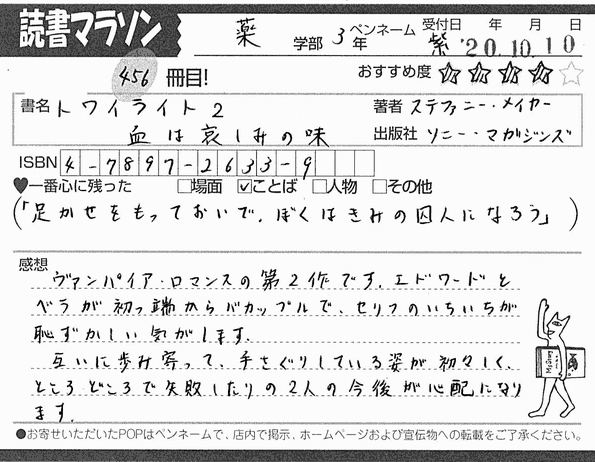 読書マラソン
薬 学部 3 年 ペンネーム 紫 受付日 年 月 日 '20.10.10
456 冊目! おすすめ度 ★★★★☆
書名 トワイライト2 著者 ステファニー・メイヤー
血は哀しみの味 出版社 ソニー・マガジンズ
ISBN 4-7897-2633-9
♥一番心に残った □場面 ☑ことば □人物 □その他
(「足かせをもっておいで。ぼくはきみの囚人になろう」)
感想
ヴァンパイア・ロマンスの第2作です。エドワードと
ベラが初っ端からバカップルで、セリフのいちいちが
恥ずかしい気がします。
互いに歩み寄って、手さぐりしている姿が初々しく、
ところどころで失敗したりの2人の今後が心配になり
ます。
●お寄せいただいたPOPはペンネームで、店内で掲示、ホームページおよび宣伝物への転載をご了承ください。